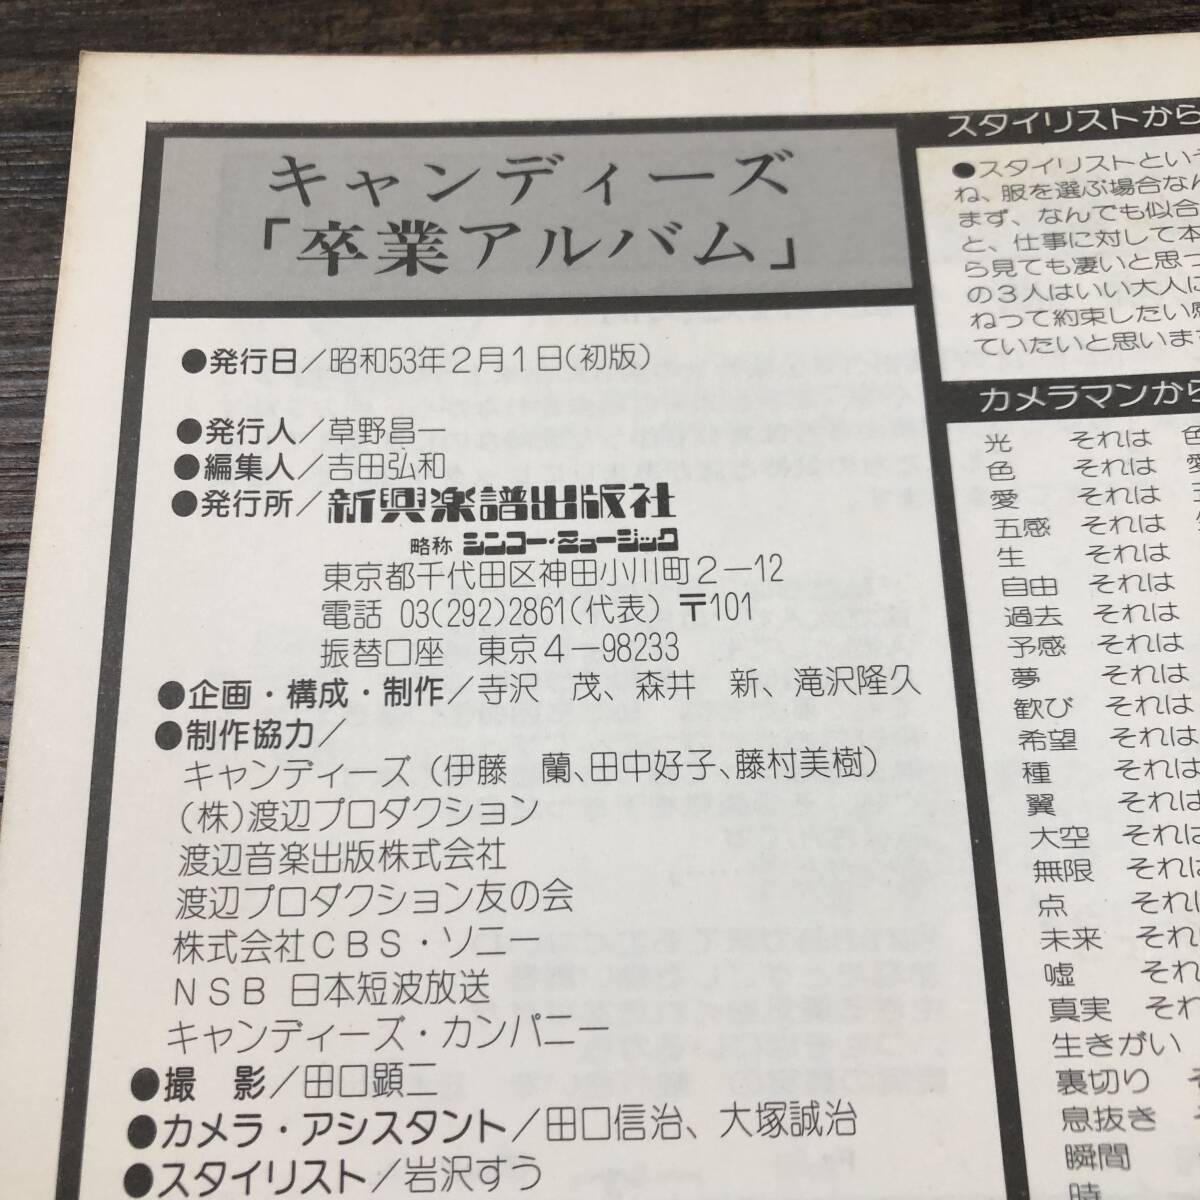 キャンディーズ
「卒業アルバム」
●発行日/昭和53年2月1日(初版)
●発行人/草野昌一
●編集人/吉田弘和
●発行所/新興楽譜出版社
略称 シンコー・ミュージック
東京都千代田区神田小川町2-12
電話 03(292)2861(代表) 〒101
振替口座 東京4-98233
●企画・構成・制作/寺沢 茂、森井 新、滝沢隆久
●制作協力/
キャンディーズ(伊藤 蘭、田中好子、藤村美樹)
(株)渡辺プロダクション
渡辺音楽出版株式会社
渡辺プロダクション友の会
株式会社CBS・ソニー
NSB 日本短波放送
キャンディーズ・カンパニー
●撮 影/田口顕二
●カメラ・アシスタント/田口信治、大塚誠治
●スタイリスト/岩沢すう
スタイリストから
●スタイリストという
ね、服を選ぶ場合なん
まず、なんでも似合
と、仕事に対して本
ら見ても凄いと思つ
の3人はいい大人に
ねって約束したい
ていたいと思います
カメラマンから
光 それは 色
色 それは 愛
愛 それは
五感 それは
生 それは
自由 それは
過去 それは
予感 それは
夢 それは
歓び それは
希望 それは
種 それは
翼 それは
大空 それは
無限 それは
点 それは
未来 それ
嘘 それ
真実 それ
生きがい
裏切り
息抜き
瞬間
時